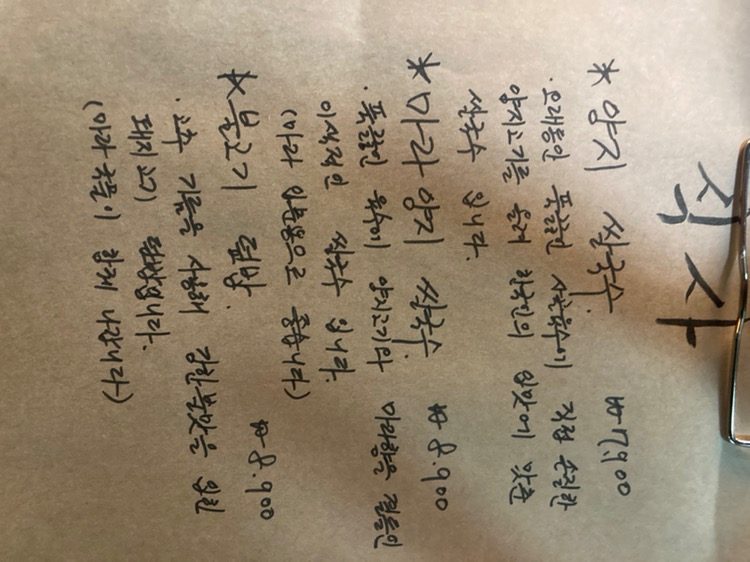 식사
* 양지 쌀국수. ₩7.900
· 오래동안 푹끓인 사골육수에 직접 손질한
양지고기를 올려 한국인의 입맛에 맞춘
쌀국수 입니다.
* 마라 양지 쌀국수. ₩8.900
· 푹끓인 육수에 양지고기와 마라향을 곁들인
이색적인 쌀국수 입니다.
(마라 입문용으로 좋습니다)
* 불고기 덮밥. ₩8.900
· 고추 기름을 사용해 강한불맛을 입힌
돼지고기 덮밥입니다.
함께 나갑니다)